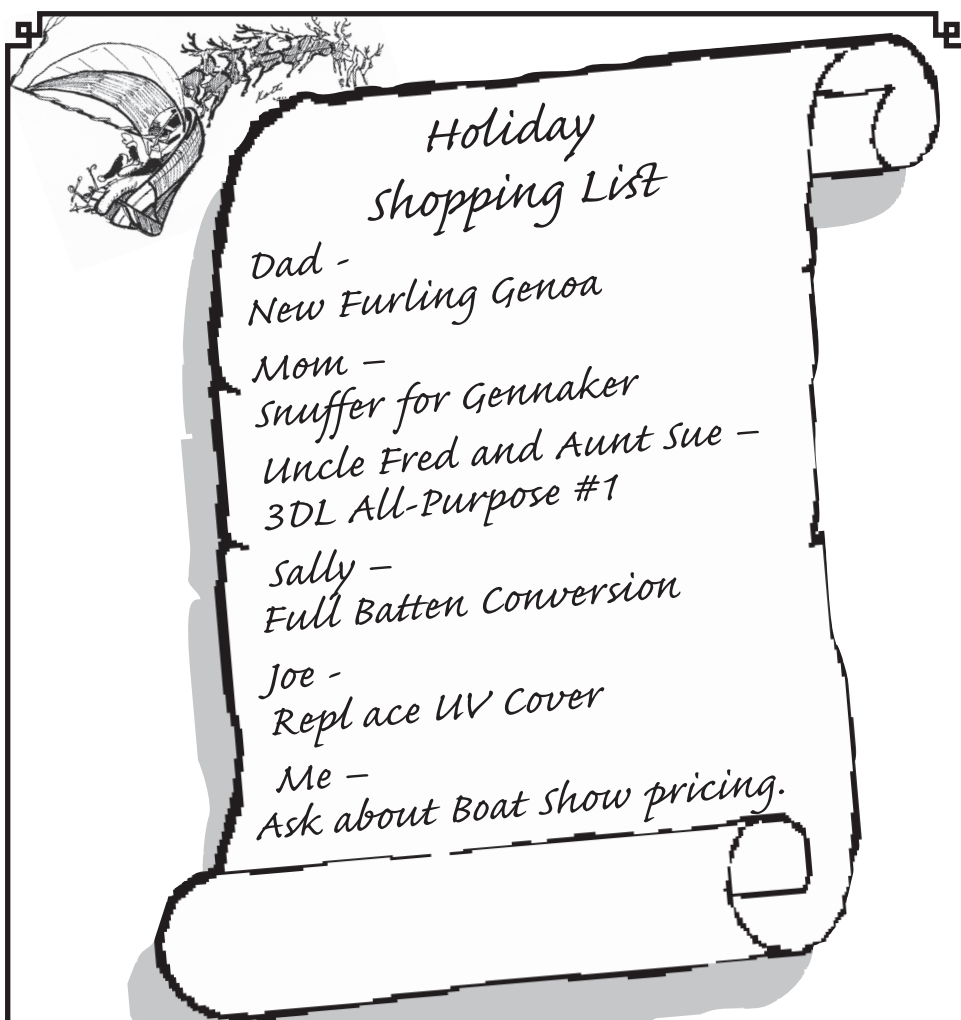 Holiday
Shopping List
Dad -
New Furling Genoa
Mom –
Snuffer for Gennaker
Uncle Fred and Aunt Sue –
3DL All-Purpose #1
Sally –
Full Batten Conversion
Joe -
Repl ace UV Cover
Me –
Ask about Boat Show pricing.